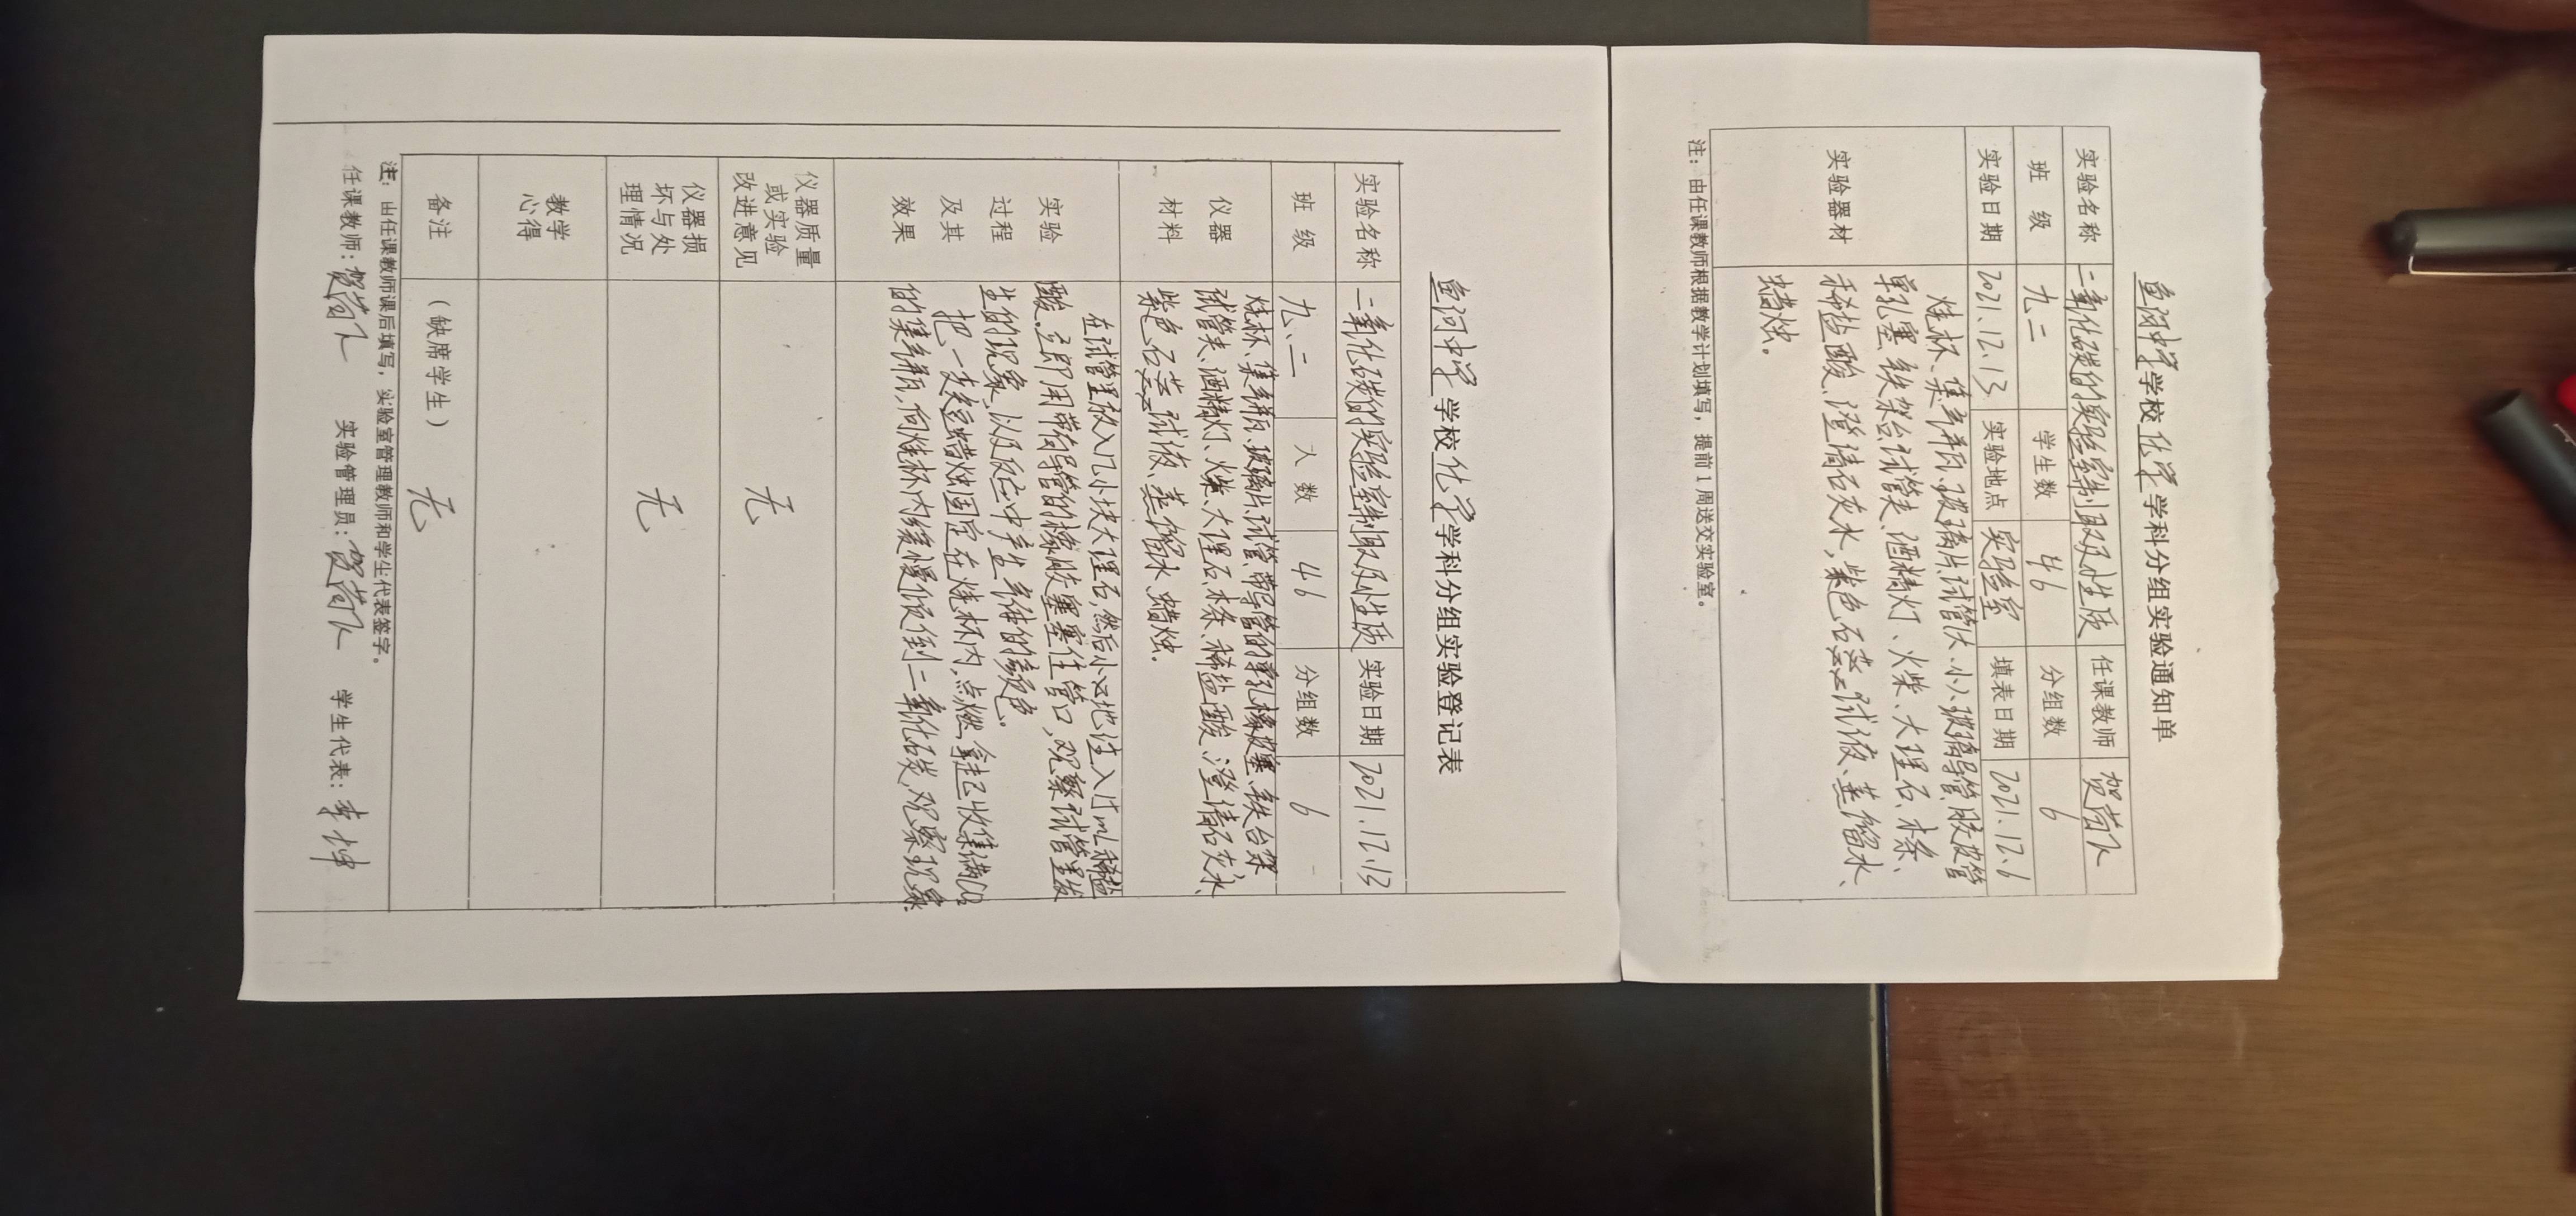 鱼河中学学校化学学科分组实验通知单
实验名称 二氧化碳的实验室制取及性质 任课教师 贺苗人
班 级 九二 学生数 46 分组数 6
实验日期 2021.12.13 实验地点 实验室 填表日期 2021.12.6
实验器材
烧杯、集气瓶、玻璃片、试管(大、小)、玻璃导管、胶皮管
单孔塞、铁架台、试管夹、酒精灯、火柴、大理石、木条、
稀盐酸、澄清石灰水、紫色石蕊试液、蒸馏水、
蜡烛。
注：由任课教师根据教学计划填写，提前1周送交实验室。
鱼河中学学校化学学科分组实验登记表
实验名称 二氧化碳的实验室制取及性质 实验日期 2021.12.13
班 级 九、二 人 数 46 分组数 6
仪器
材料
烧杯、集气瓶、玻璃片、试管、带导管的单孔橡皮塞、铁台架
试管夹、酒精灯、火柴、大理石、木条、稀盐酸、澄清石灰水、
紫色石蕊试液、蒸馏水、蜡烛.
实验
过程
及其
效果
在试管里放入几小块大理石,然后小心地注入5mL稀盐
酸。立即用带有导管的橡胶塞塞住管口,观察试管里发
生的现象,以及反应中产生气体的颜色。
把一支短蜡烛固定在烧杯内,点燃,拿起已收集满CO2
的集气瓶,向烧杯内缓慢倾倒二氧化碳,观察现象.
仪器质量
或实验
改进意见
无
仪器损
坏与处
理情况
无
教学
心得
备注 （缺席学生） 无
注：由任课教师课后填写，实验室管理教师和学生代表签字。
任课教师：贺苗人 实验管理员：贺苗人 学生代表：李坤